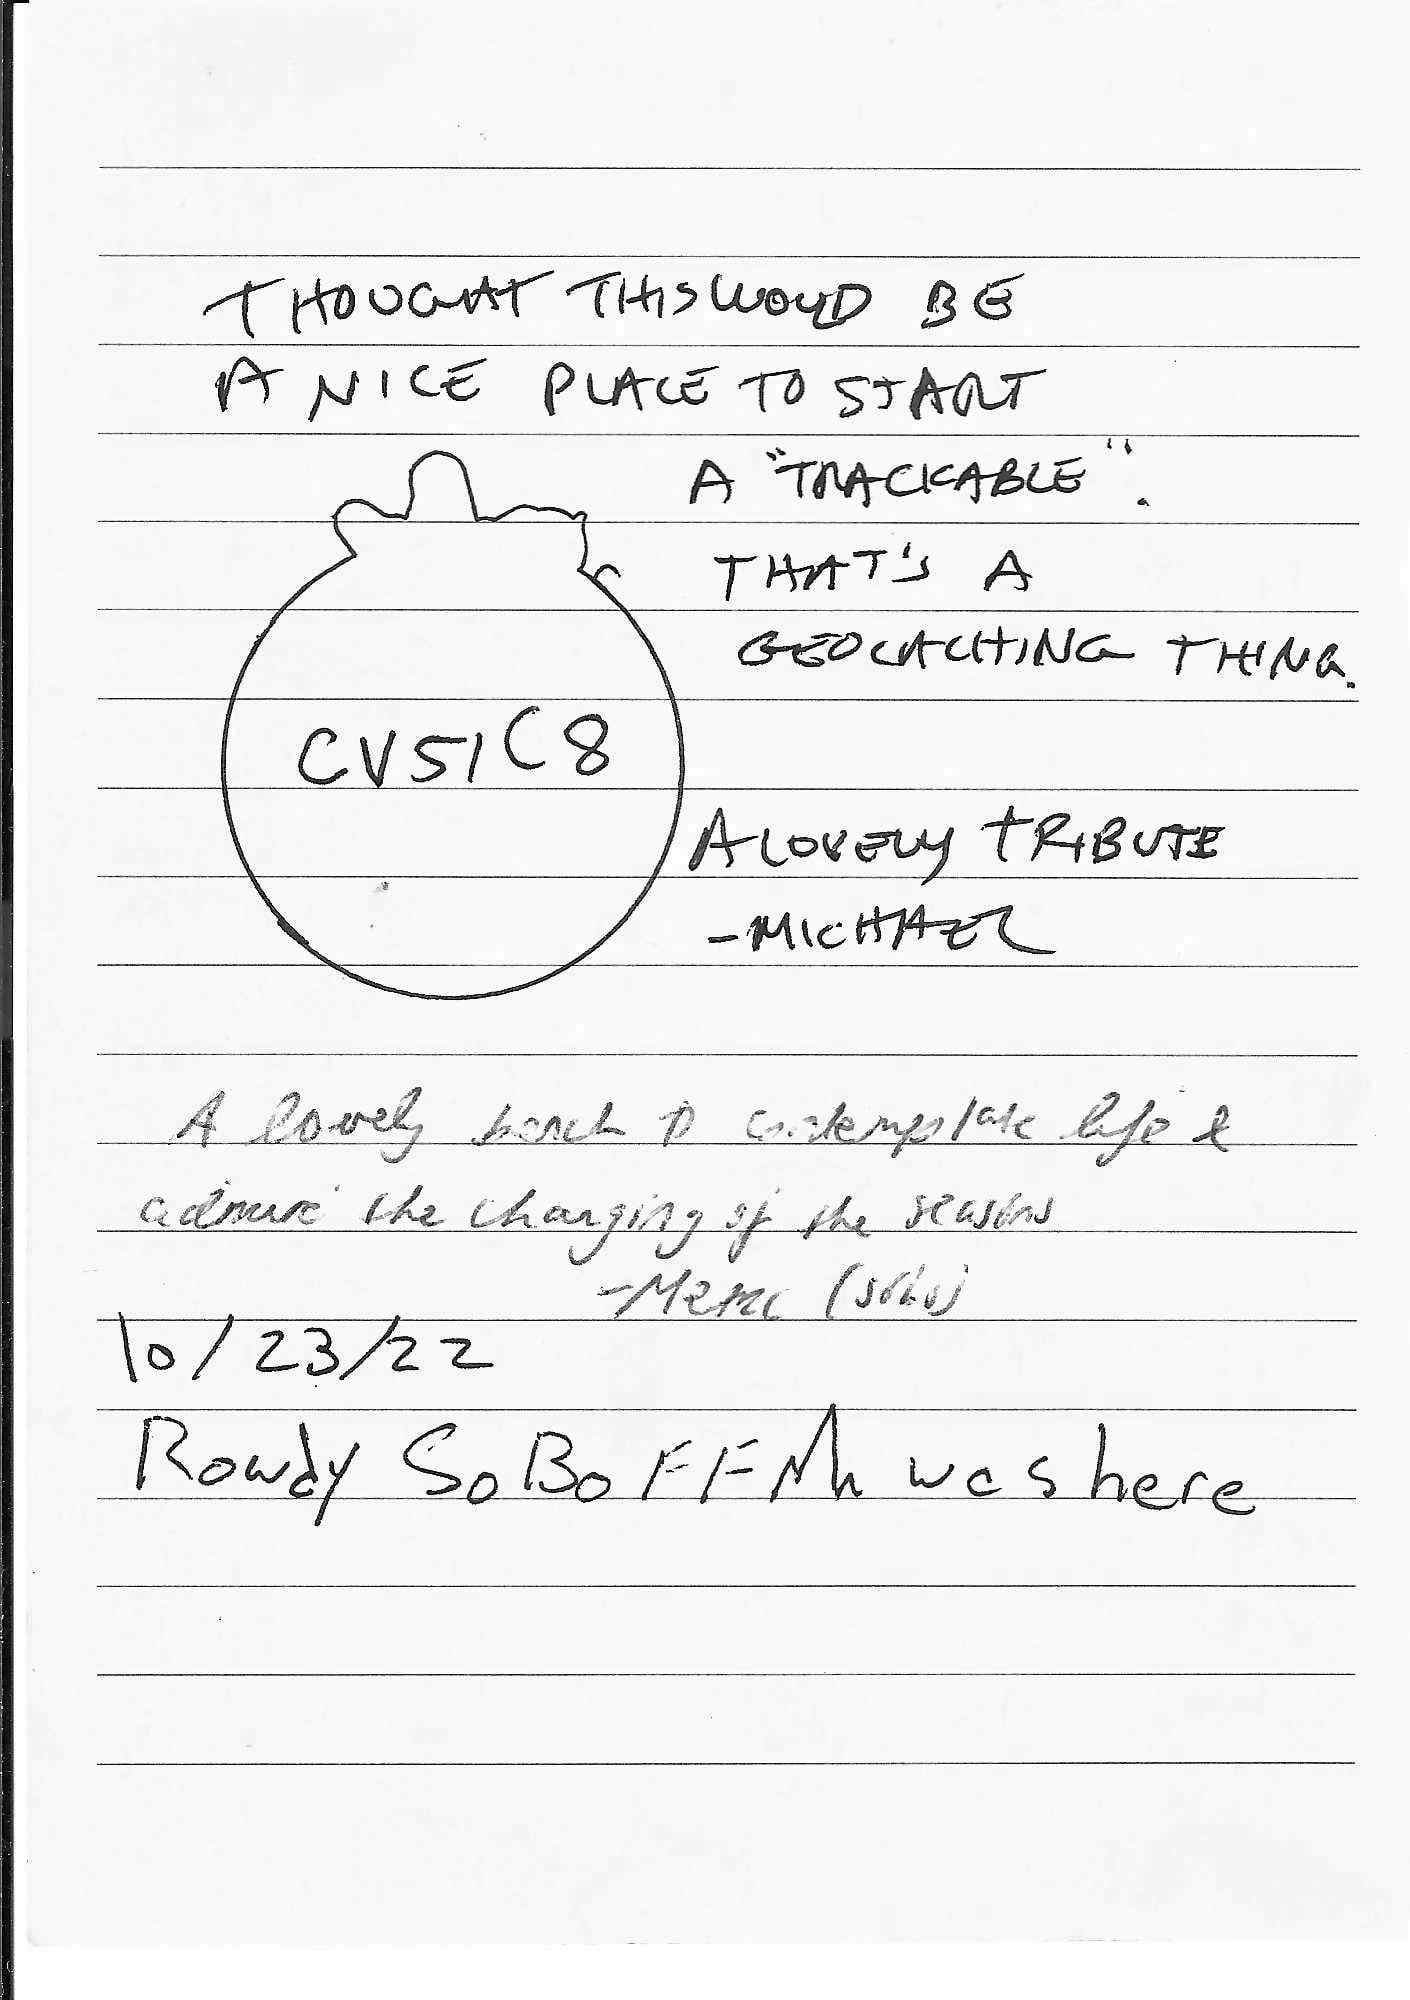 THOUGHT THIS WOULD BE
A NICE PLACE TO START
A "TRACKABLE".
THAT'S A
GEOCACHING THING.
CV51C8
A LOVELY TRIBUTE
-MICHAEL
A lovely bench to contemplate life &
admire the changing of the seasons
10/23/22
Rowdy SoBo FFM was here